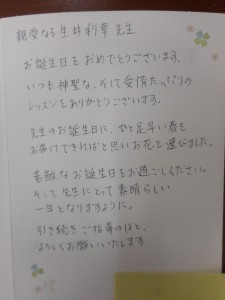 親愛なる生井利幸先生
お誕生日をおめでとうございます。
いつも神聖な、そして愛情たっぷりの
レッスンをありがとうございます。
先生のお誕生日に、ひと足早い春を
お届けできればと思いお花を選びました。
素敵なお誕生日をお過ごしください。
そして先生にとって素晴らしい
一年となりますように。
引き続きご指導のほど、
よろしくお願いいたします。